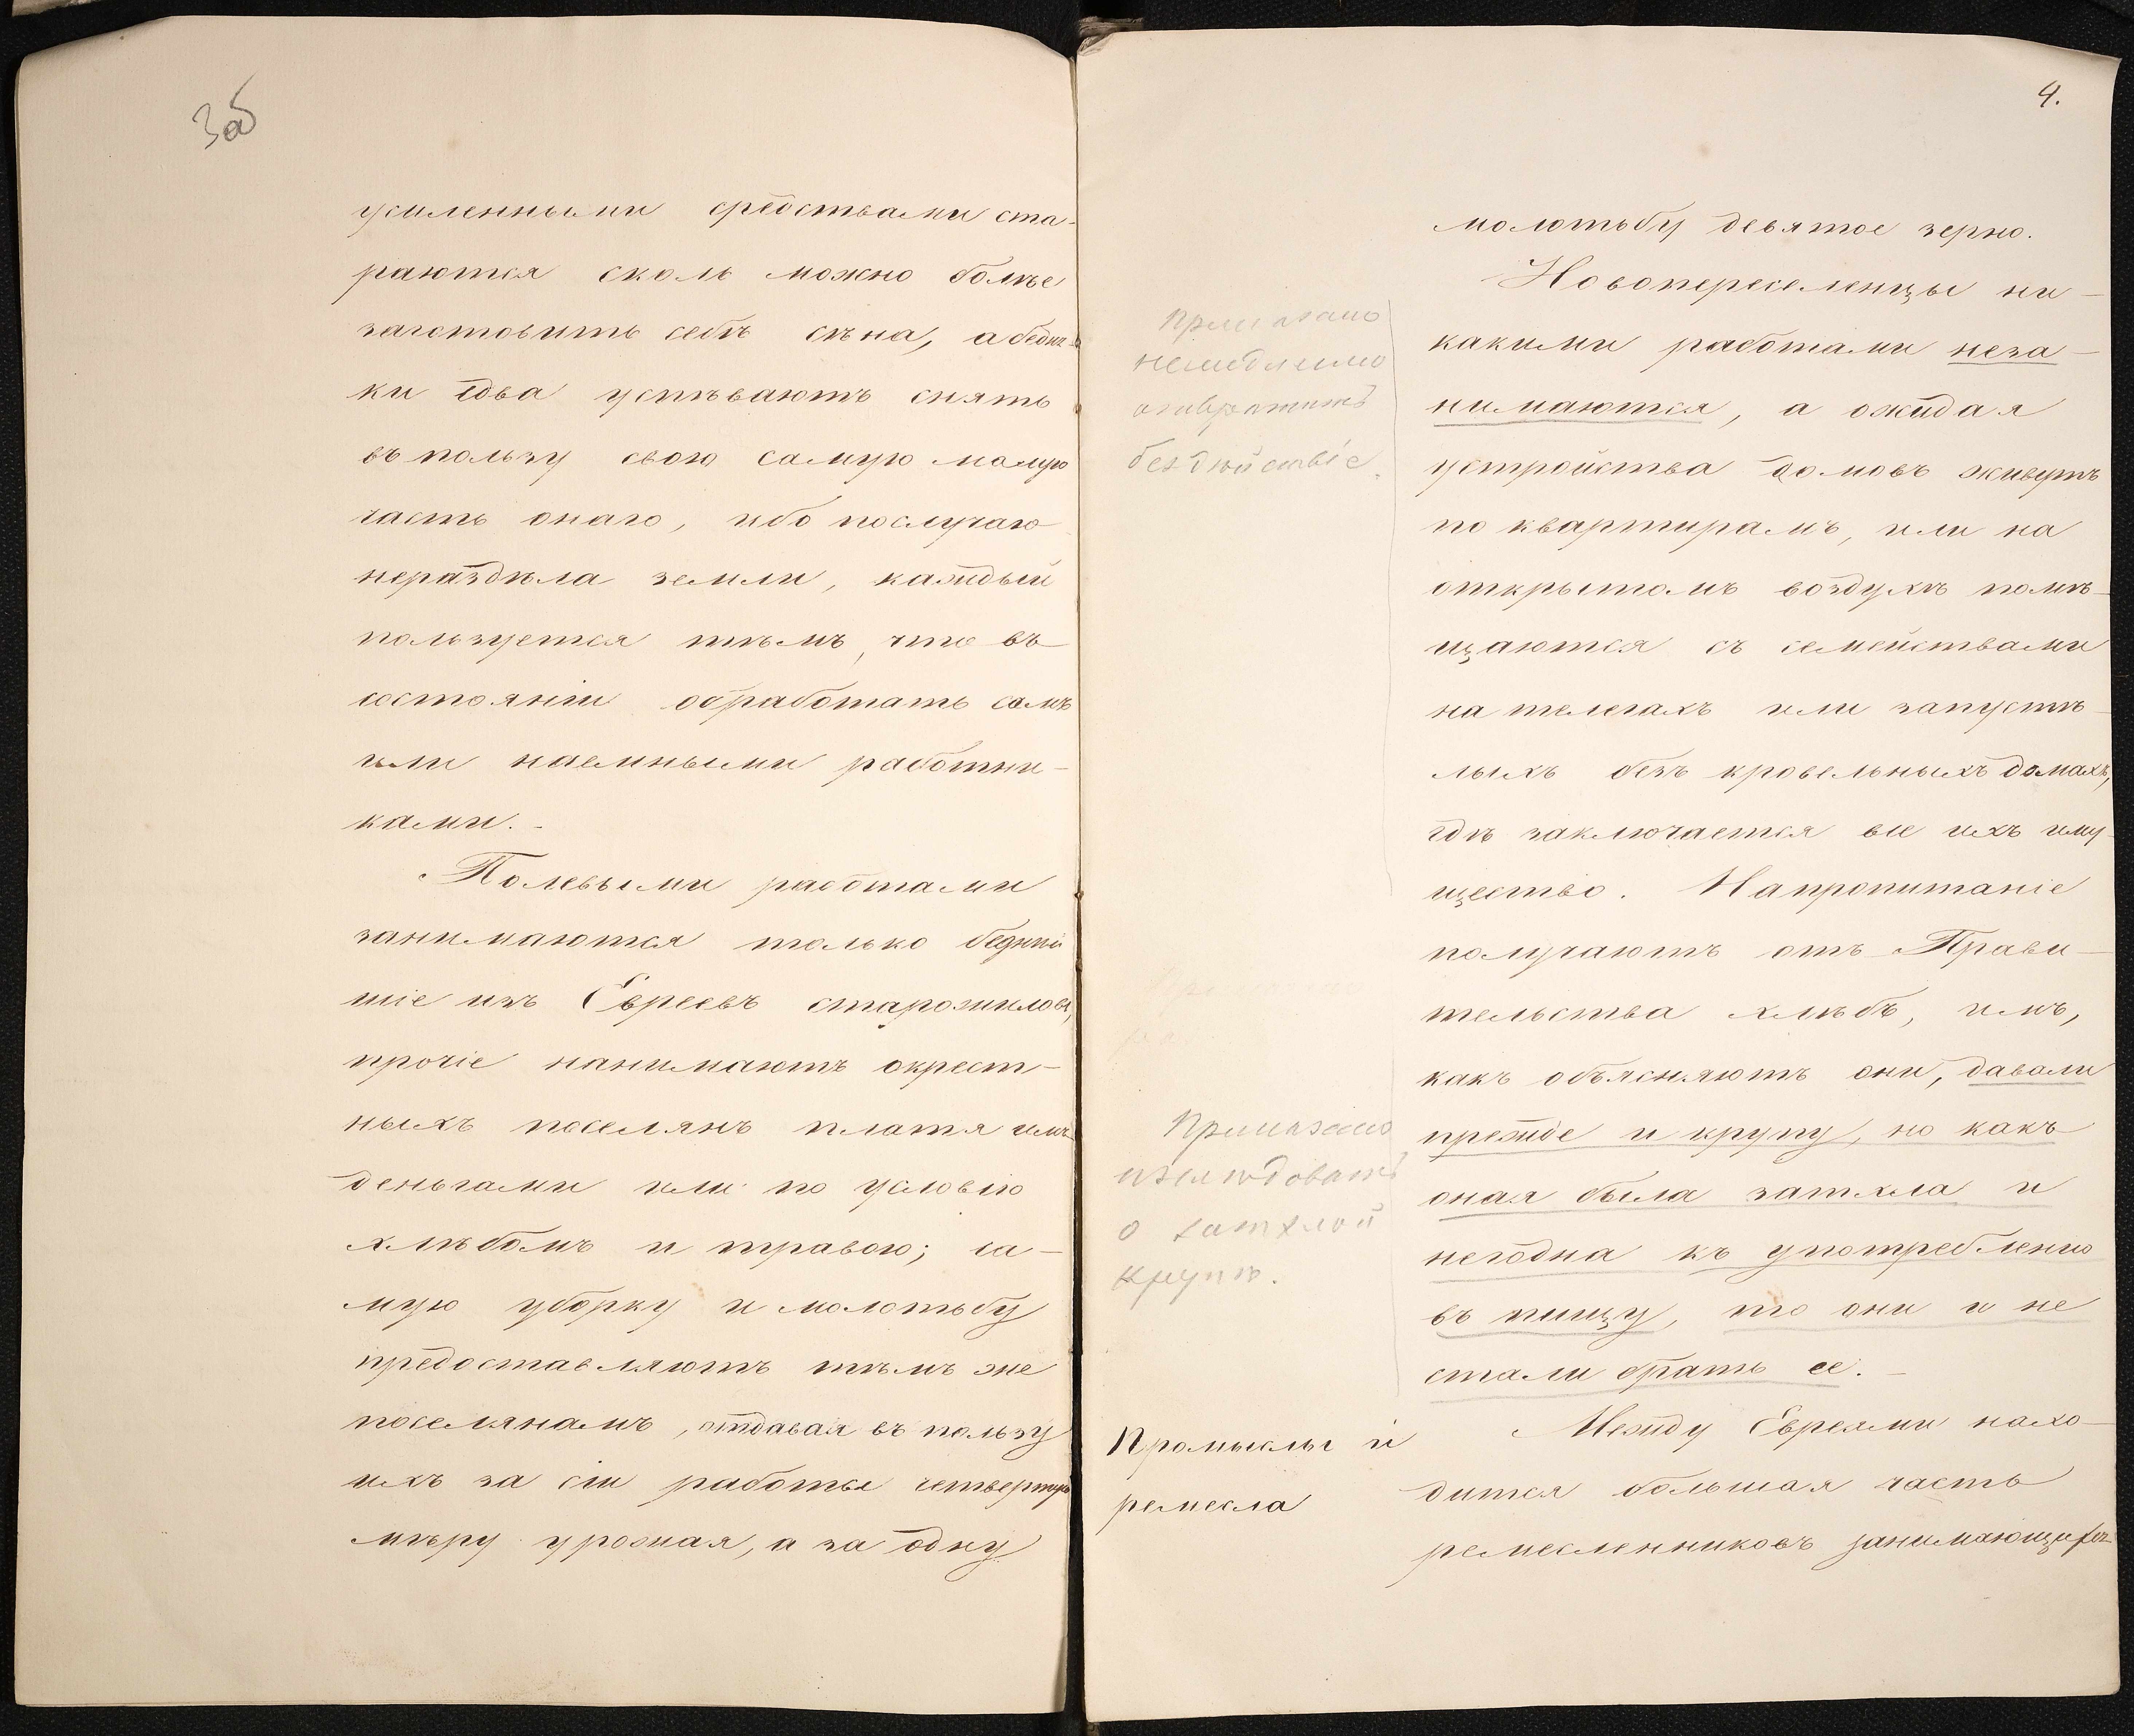 3об
усиленными средствами ста-
раются сколь можно болѣе
заготовить себѣ сѣна, а бедня-
ки едва успѣваютъ снять
въ пользу свою самую малую
часть онаго, ибо послучаю
нераздѣла земли, каждый
пользуется тѣмъ, что въ
состояніи обработать самъ
или наемными работни-
ками.-
Полевыми работами
занимаются только беднѣй
шіе изъ Евреевъ старожиловъ,
прочіе нанимаютъ окрест-
ныхъ поселянъ платя имъ
деньгами или по условію
хлѣбомъ и травою; са-
мую уборку и молотьбу
предоставляютъ тѣмъ же
поселянамъ, отдавая въ пользу
ихъ за сіи работы четвертую
мѣру урожая, а за одну
4.
молотьбу девятое зерно.
Новопереселенцы ни-
какими работами неза-
нимаются, а ожидая
устройства домовъ живутъ
по квартирамъ, или на
открытомъ воздухѣ помѣ-
щаются съ семействами
на телегахъ или запустѣ-
лыхъ безъ кровельныхъ домахъ,
гдѣ заключается все ихъ иму-
щество. Напропитаніе
получаютъ отъ Прави-
тельства хлѣбъ, имъ,
какъ объясняютъ они, давали
прежде и крупу, но какъ
оная была затхла и
негодна къ употребленію
въ пищу, то они и не
стали брать ее.-
Между Евреями нахо-
дится большая часть
ремесленниковъ занимающихся
Приказано
немедленно
отвратить
бездѣйствіе.
Приказано
изслѣдовать
о затхлой
крупѣ.
Промыслы и
ремесла